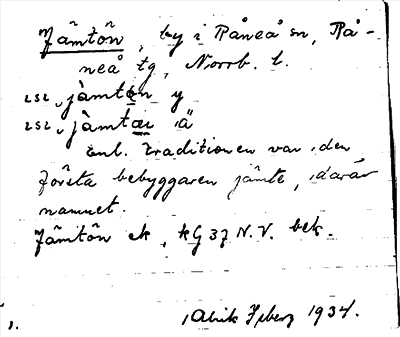 Jämtön, by i Råneå sn, Rå-
neå tg, Norrb. l.
jàmtøn y
jàmtœ ä
Enl. traditionen var den
första bebyggaren jämte, därav
namnet.
Jämtön ek, kG 37 N.V. bek.
Alrik 1934.